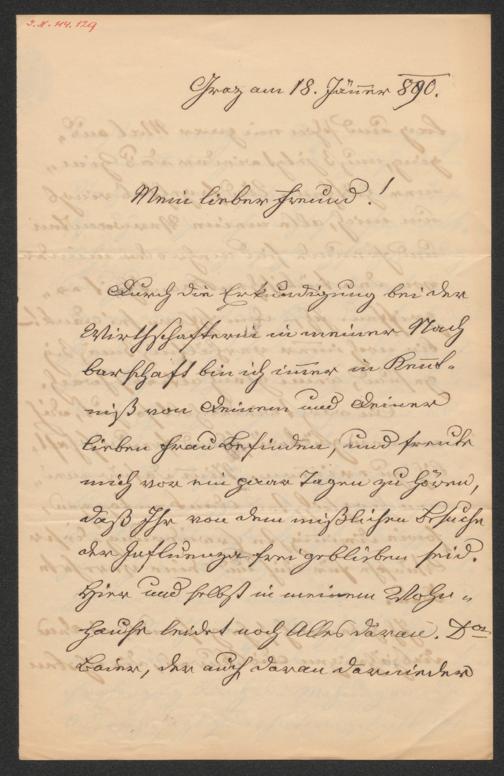 I.N. 44.129
Graz am 18. Jänner 890.
Mein lieber Freund!
Durch die Erkundigung bei der
Wirthschafterin in meiner Nach
barschaft bin ich immer in Kennt-
niß von Deinem und Deiner
lieben Frau Befinden, und freute
mich vor ein paar Tagen zu hören,
daß Ihr von dem mißlichen Besuche
der Influenza frei geblieben seid.
Hier und selbst in meinem Wohn-
hause leidet noch Alles daran. Dor
Baier, der auch daran darnieder